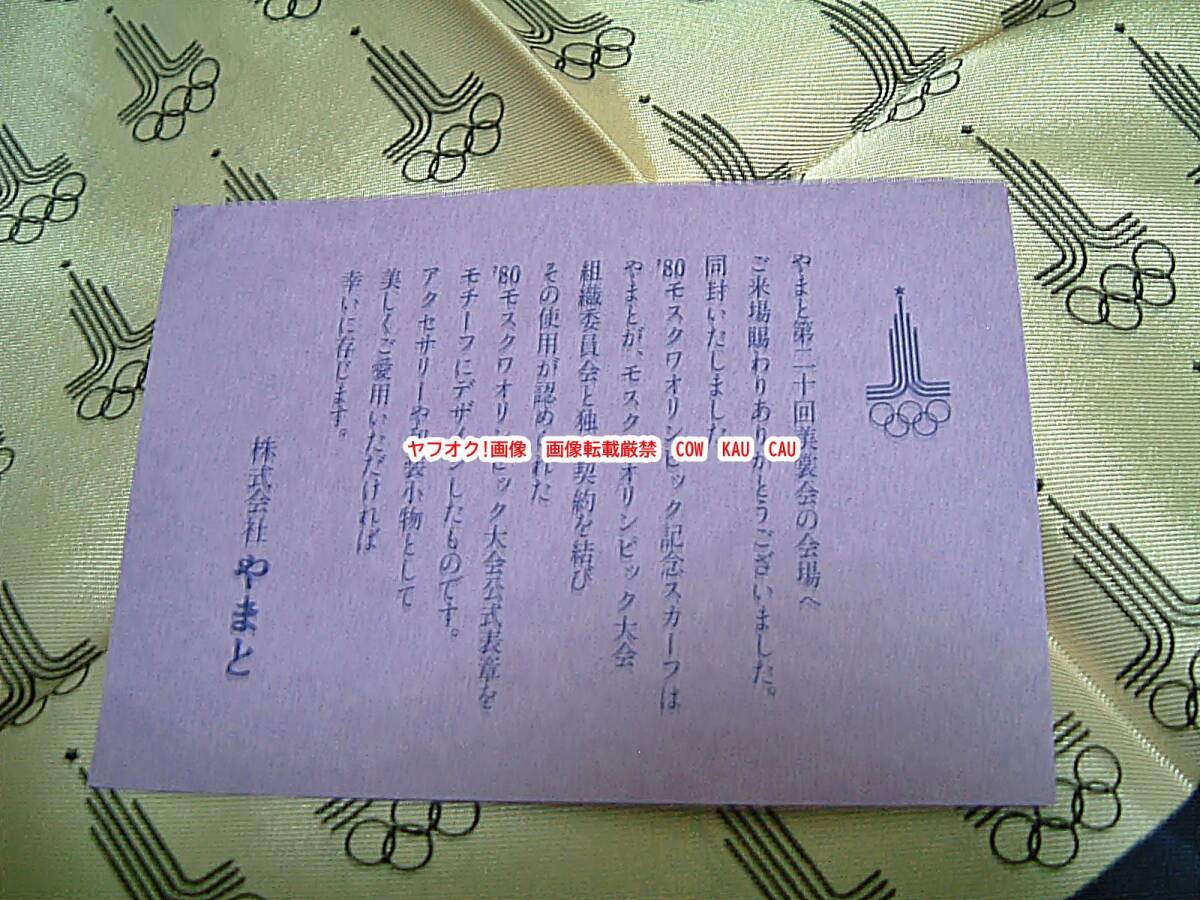 やまと第二十回美装会の会場へ
ご来場賜わりありがとうございました。
同封いたしました
'80モスクワオリンピック記念スカーフは
やまとが、モスクワオリンピック大会
組織委員会と独 契約を結び
その使用が認められた
'80モスクワオリンピック大会公式表章を
モチーフにデザインしたものです。
アクセサリーや和装小物として
美しくご愛用いただければ
幸いに存じます。
株式会社 やまと
ヤフオク!画像 画像転載厳禁 COW KAU CAU